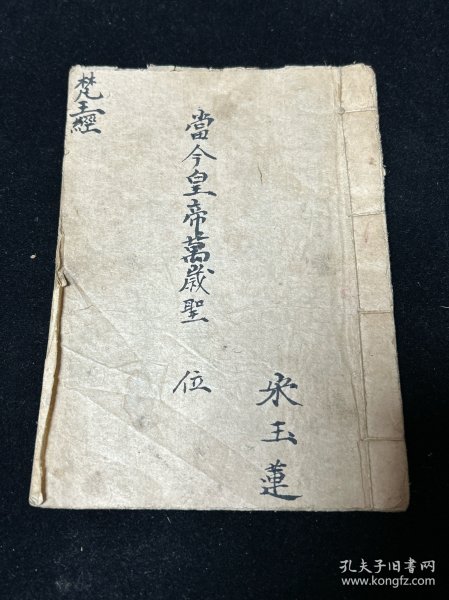 梵王經
當今皇帝萬歲聖位
永玉蓮
孔夫子旧书网
www.kongfz.com